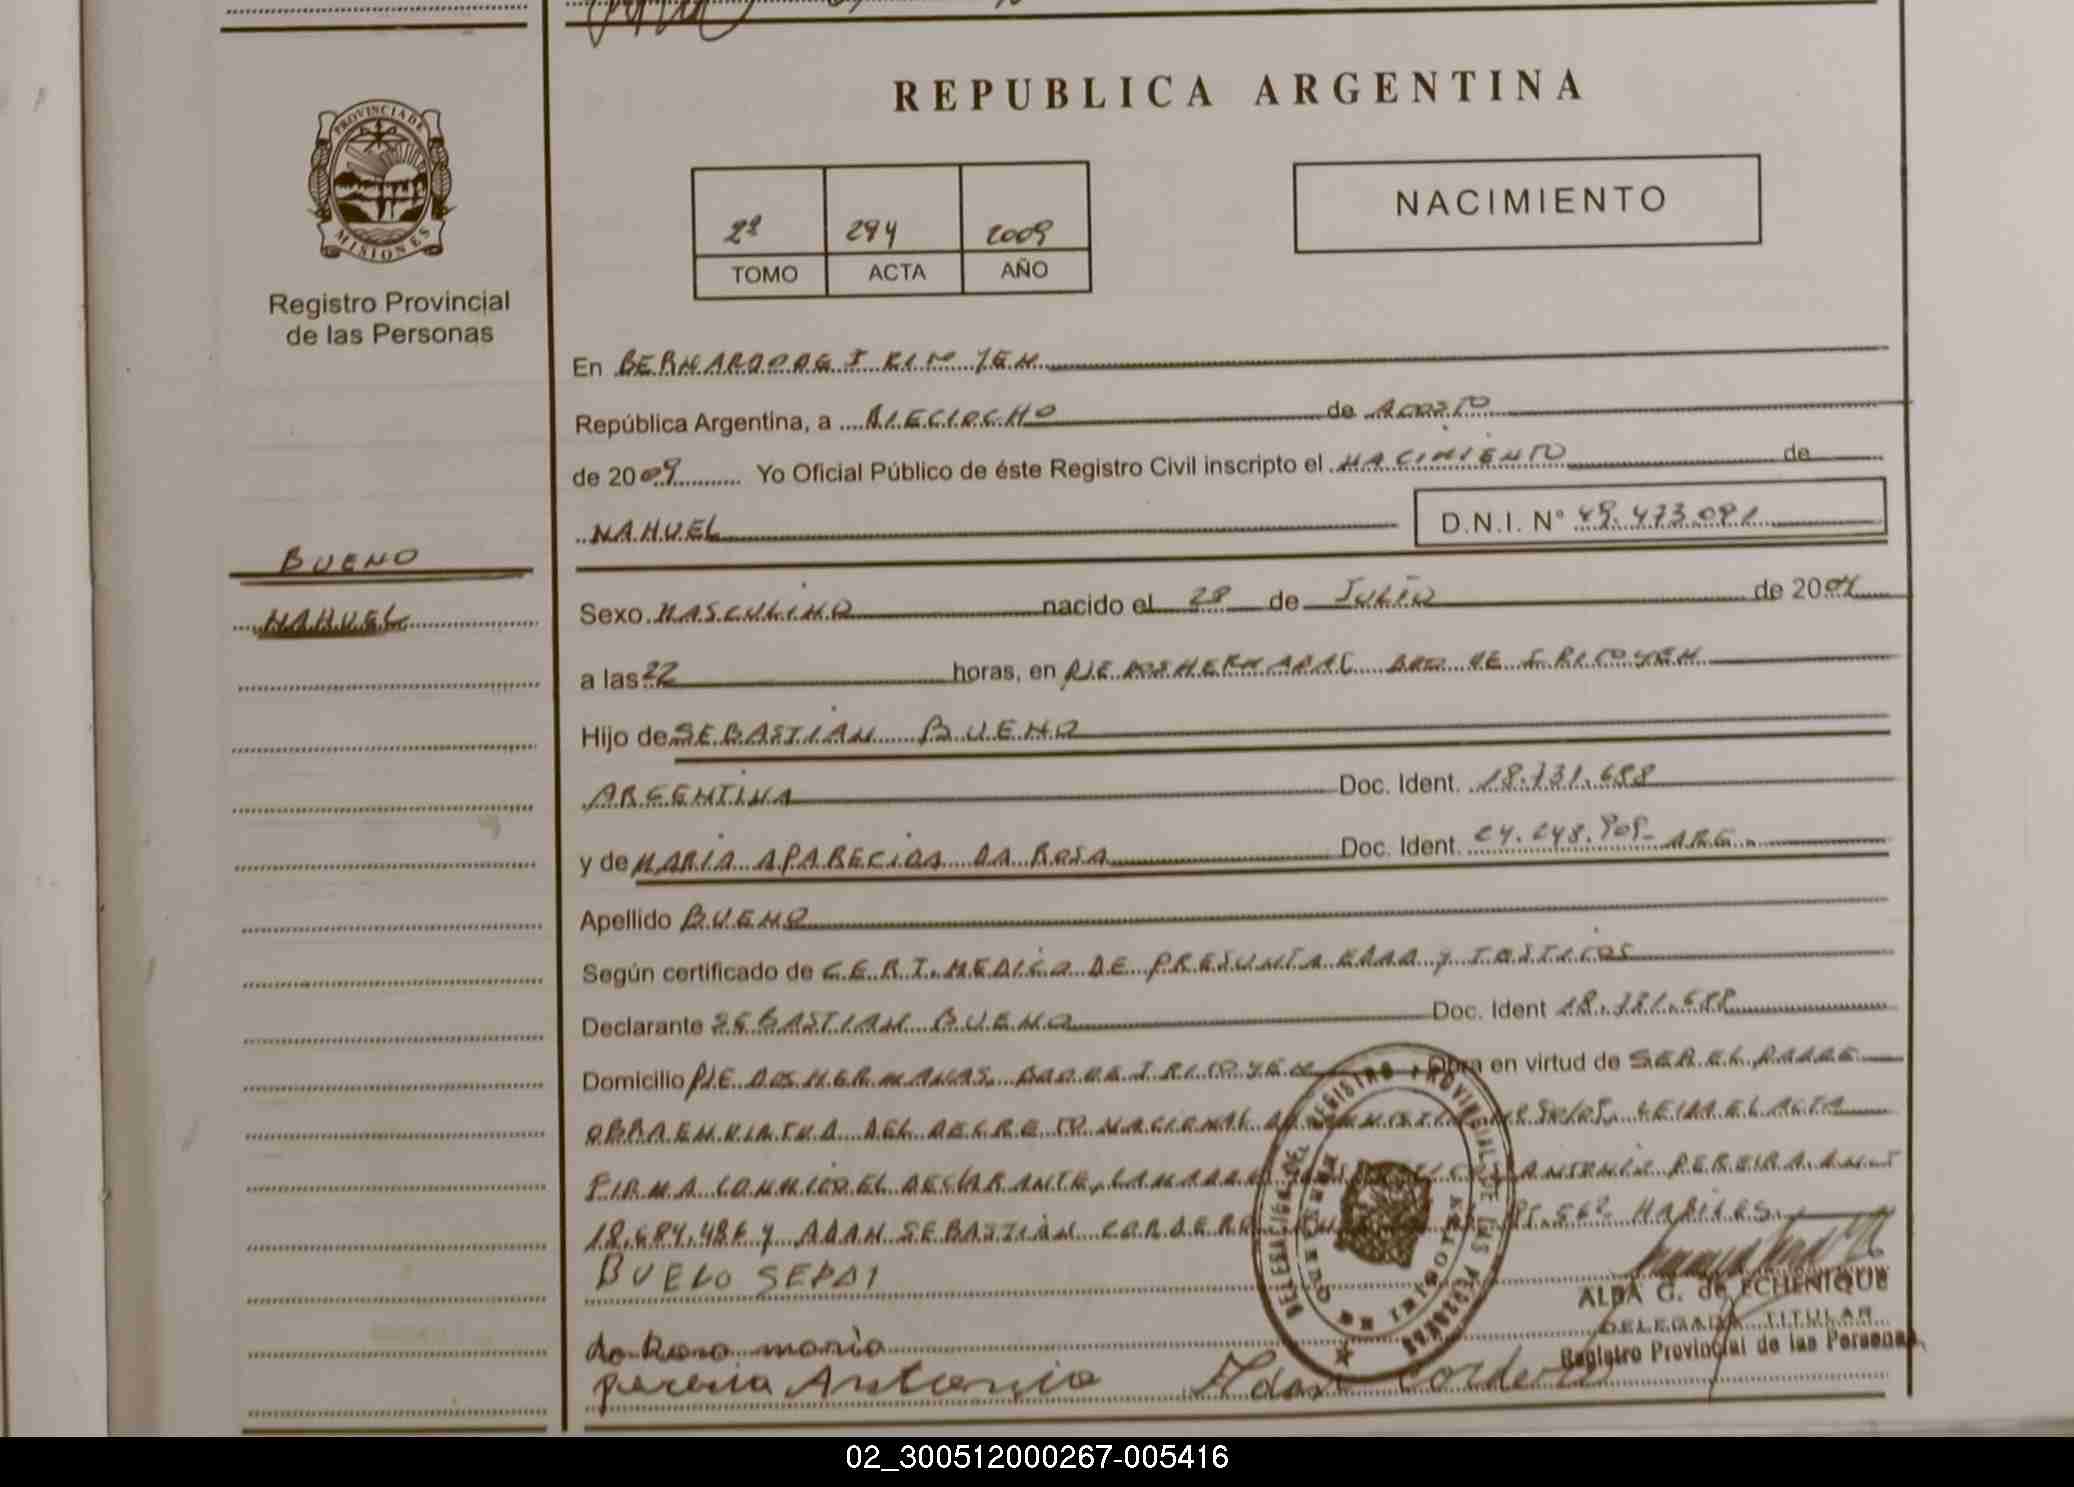 REPUBLICA ARGENTINA
PROVINCIA DE
MISIONES
Registro Provincial
de las Personas
NACIMIENTO
2º 294 2009
TOMO ACTA AÑO
En BERNARDO DE IRIGOYEN
República Argentina, a DIECIOCHO de AGOSTO
de 2009 Yo Oficial Público de éste Registro Civil inscripto el NACIMIENTO de
NAHUEL D.N.I. Nº 49.473.091
BUENO
NAHUEL
Sexo MASCULINO nacido el 28 de JULIO de 20
a las 22 horas, en PJE DOS HERMANAS BDO DE IRIGOYEN
Hijo de SEBASTIAN BUENO
ARGENTINA Doc. Ident. 18.731.688
y de MARIA APARECIDA DA ROSA Doc. Ident. 24.248.909- ARG.
Apellido BUENO
Según certificado de CERT. MEDICO DE PRESUNTA EDAD y TESTIGOS
Declarante SEBASTIAN BUENO Doc. Ident 18.731.688
Domicilio PJE DOS HERMANAS BDO DE IRIGOYEN Obra en virtud de SER EL PADRE
OBRA EN VIRTUD DEL DECRETO NACIONAL LEIDA EL ACTA
FIRMA CONMIGO EL DECLARANTE, LA MADRE ANTONIA PEREIRA
18.684.486 y ADAN SEBASTIAN CORDERO HABILES.
BUENO SEPAI
da Rosa maria
pereira Antonio Adan Cordero
DELEGACION DEL REGISTRO PROVINCIAL DE LAS PERSONAS
ALBA G. de ECHENIQUE
DELEGADA TITULAR
Registro Provincial de las Personas
02_300512000267-005416